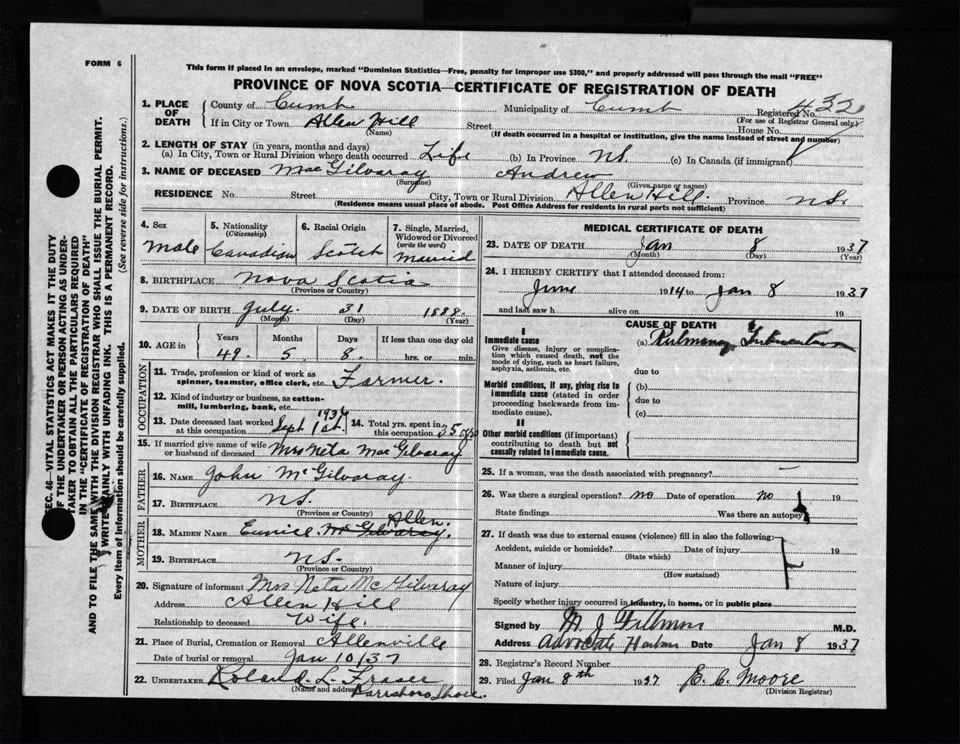 FORM 6
This form if placed in an envelope, marked "Dominion Statistics—Free, penalty for improper use $300," and properly addressed will pass through the mail "FREE"
PROVINCE OF NOVA SCOTIA—CERTIFICATE OF REGISTRATION OF DEATH
SEC. 46—VITAL STATISTICS ACT MAKES IT THE DUTY
OF THE UNDERTAKER OR PERSON ACTING AS UNDER-
TAKER TO OBTAIN ALL THE PARTICULARS REQUIRED
IN THE "CERTIFICATE OF REGISTRATION OF DEATH"
AND TO FILE THE SAME WITH THE DIVISION REGISTRAR WHO SHALL ISSUE THE BURIAL PERMIT.
WRITE PLAINLY WITH UNFADING INK. THIS IS A PERMANENT RECORD.
Every item of information should be carefully supplied. (See reverse side for instructions.)
1. PLACE OF DEATH County of Cumb. Municipality of Cumb Registered No. 432
(For use of Registrar General only)
If in City or Town Allen Hill Street House No.
(Name) (If death occurred in a hospital or institution, give the name instead of street and number)
2. LENGTH OF STAY (in years, months and days)
(a) In City, Town or Rural Division where death occurred Life (b) In Province N.S. (c) In Canada (if immigrant)
3. NAME OF DECEASED MacGilvaray Andrew
(Surname) (Given name or names)
RESIDENCE No. Street City, Town or Rural Division Allen Hill. Province N.S.
(Residence means usual place of abode. Post Office Address for residents in rural parts not sufficient)
4. Sex 5. Nationality (Citizenship) 6. Racial Origin 7. Single, Married, Widowed or Divorced (write the word)
Male Canadian Scotch Married
8. BIRTHPLACE Nova Scotia
(Province or Country)
9. DATE OF BIRTH July 31 1888
(Month) (Day) (Year)
10. AGE in Years Months Days If less than one day old
49. 5. 8. hrs. or min.
OCCUPATION
11. Trade, profession or kind of work as
spinner, teamster, office clerk, etc. Farmer.
12. Kind of industry or business, as cotton-
mill, lumbering, bank, etc.
13. Date deceased last worked at this occupation Sept 1st 1936 14. Total yrs. spent in this occupation 35
15. If married give name of wife or husband of deceased Mrs Neta MacGilvaray
FATHER
16. NAME John McGilvaray.
17. BIRTHPLACE N.S.
(Province or Country)
MOTHER
18. MAIDEN NAME Eunice. McGilvaray. Allen.
19. BIRTHPLACE N.S.
(Province or Country)
20. Signature of informant Mrs Neta McGilvaray
Address Allen Hill
Relationship to deceased Wife.
21. Place of Burial, Cremation or Removal Allenville
Date of burial or removal Jan 10/37
22. UNDERTAKER Roland L. Fraser
(Name and address) Parrsboro Shore.
MEDICAL CERTIFICATE OF DEATH
23. DATE OF DEATH Jan 8 1937
(Month) (Day) (Year)
24. I HEREBY CERTIFY that I attended deceased from:
June 1914 to Jan 8 1937
and last saw h alive on 19
CAUSE OF DEATH
I
Immediate cause (a) Pulmonary Tuberculosis
Give disease, injury or complication which caused death, not the mode of dying, such as heart failure, asphyxia, asthenia, etc.
due to
Morbid conditions, if any, giving rise to immediate cause (stated in order proceeding backwards from immediate cause).
(b)
due to
(c)
II
Other morbid conditions (if important) contributing to death but not causally related to immediate cause.
25. If a woman, was the death associated with pregnancy?
26. Was there a surgical operation? no Date of operation no 19
State findings Was there an autopsy
27. If death was due to external causes (violence) fill in also the following:
Accident, suicide or homicide? Date of injury 19
(State which)
Manner of injury
(How sustained)
Nature of injury
Specify whether injury occurred in industry, in home, or in public place
Signed by M. J. Fillmore M.D.
Address Advocate Harbour Date Jan 8 1937
28. Registrar's Record Number
29. Filed Jan 8th 1937 E. C. Moore
(Division Registrar)